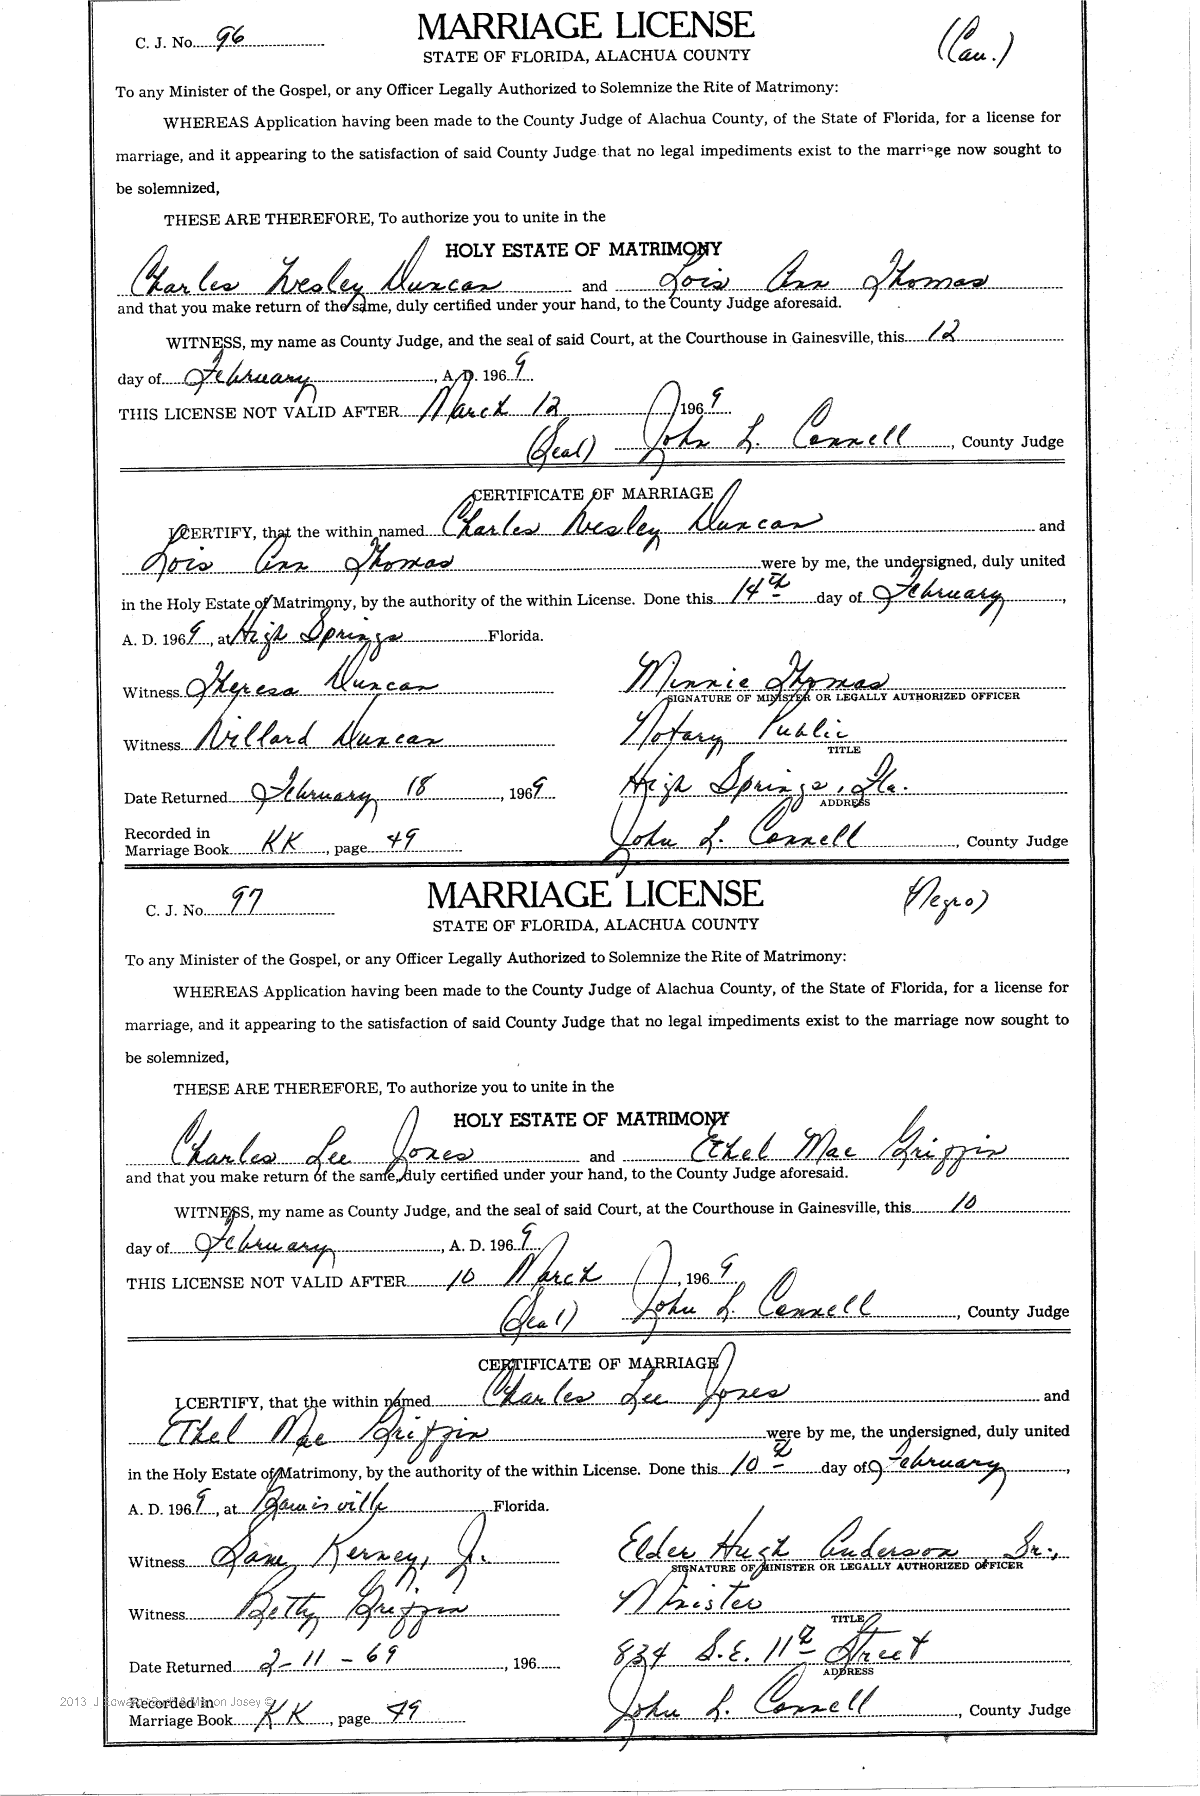 C. J. No. 96 MARRIAGE LICENSE (Cau.)
STATE OF FLORIDA, ALACHUA COUNTY
To any Minister of the Gospel, or any Officer Legally Authorized to Solemnize the Rite of Matrimony:
WHEREAS Application having been made to the County Judge of Alachua County, of the State of Florida, for a license for
marriage, and it appearing to the satisfaction of said County Judge that no legal impediments exist to the marriage now sought to
be solemnized,
THESE ARE THEREFORE, To authorize you to unite in the
HOLY ESTATE OF MATRIMONY
Charles Wesley Duncan and Lois Ann Thomas
and that you make return of the same, duly certified under your hand, to the County Judge aforesaid.
WITNESS, my name as County Judge, and the seal of said Court, at the Courthouse in Gainesville, this 12
day of February, A. D. 1969.
THIS LICENSE NOT VALID AFTER March 12 1969
(Seal) John L. Connell, County Judge
CERTIFICATE OF MARRIAGE
I CERTIFY, that the within named Charles Wesley Duncan and
Lois Ann Thomas were by me, the undersigned, duly united
in the Holy Estate of Matrimony, by the authority of the within License. Done this 14th day of February,
A. D. 1969, at High Springs Florida.
Witness Theresa Duncan Minnie Thomas
SIGNATURE OF MINISTER OR LEGALLY AUTHORIZED OFFICER
Witness Willard Duncan Notary Public
TITLE
Date Returned February 18, 1969 High Springs, Fla.
ADDRESS
Recorded in
Marriage Book KK, page 49 John L. Connell, County Judge
C. J. No. 97 MARRIAGE LICENSE (Negro)
STATE OF FLORIDA, ALACHUA COUNTY
To any Minister of the Gospel, or any Officer Legally Authorized to Solemnize the Rite of Matrimony:
WHEREAS Application having been made to the County Judge of Alachua County, of the State of Florida, for a license for
marriage, and it appearing to the satisfaction of said County Judge that no legal impediments exist to the marriage now sought to
be solemnized,
THESE ARE THEREFORE, To authorize you to unite in the
HOLY ESTATE OF MATRIMONY
Charles Lee Jones and Ethel Mae Griffin
and that you make return of the same, duly certified under your hand, to the County Judge aforesaid.
WITNESS, my name as County Judge, and the seal of said Court, at the Courthouse in Gainesville, this 10
day of February, A. D. 1969
THIS LICENSE NOT VALID AFTER 10 March, 1969
(Seal) John L. Connell, County Judge
CERTIFICATE OF MARRIAGE
I CERTIFY, that the within named Charles Lee Jones and
Ethel Mae Griffin were by me, the undersigned, duly united
in the Holy Estate of Matrimony, by the authority of the within License. Done this 10th day of February,
A. D. 1969, at Gainesville Florida.
Witness Kerney, Jr. Elder Hugh Anderson Sr.,
SIGNATURE OF MINISTER OR LEGALLY AUTHORIZED OFFICER
Witness Betty Griffin Minister
TITLE
Date Returned 2-11-69, 196 834 S.E. 11th Street
ADDRESS
Recorded in
Marriage Book KK, page 49 John L. Connell, County Judge